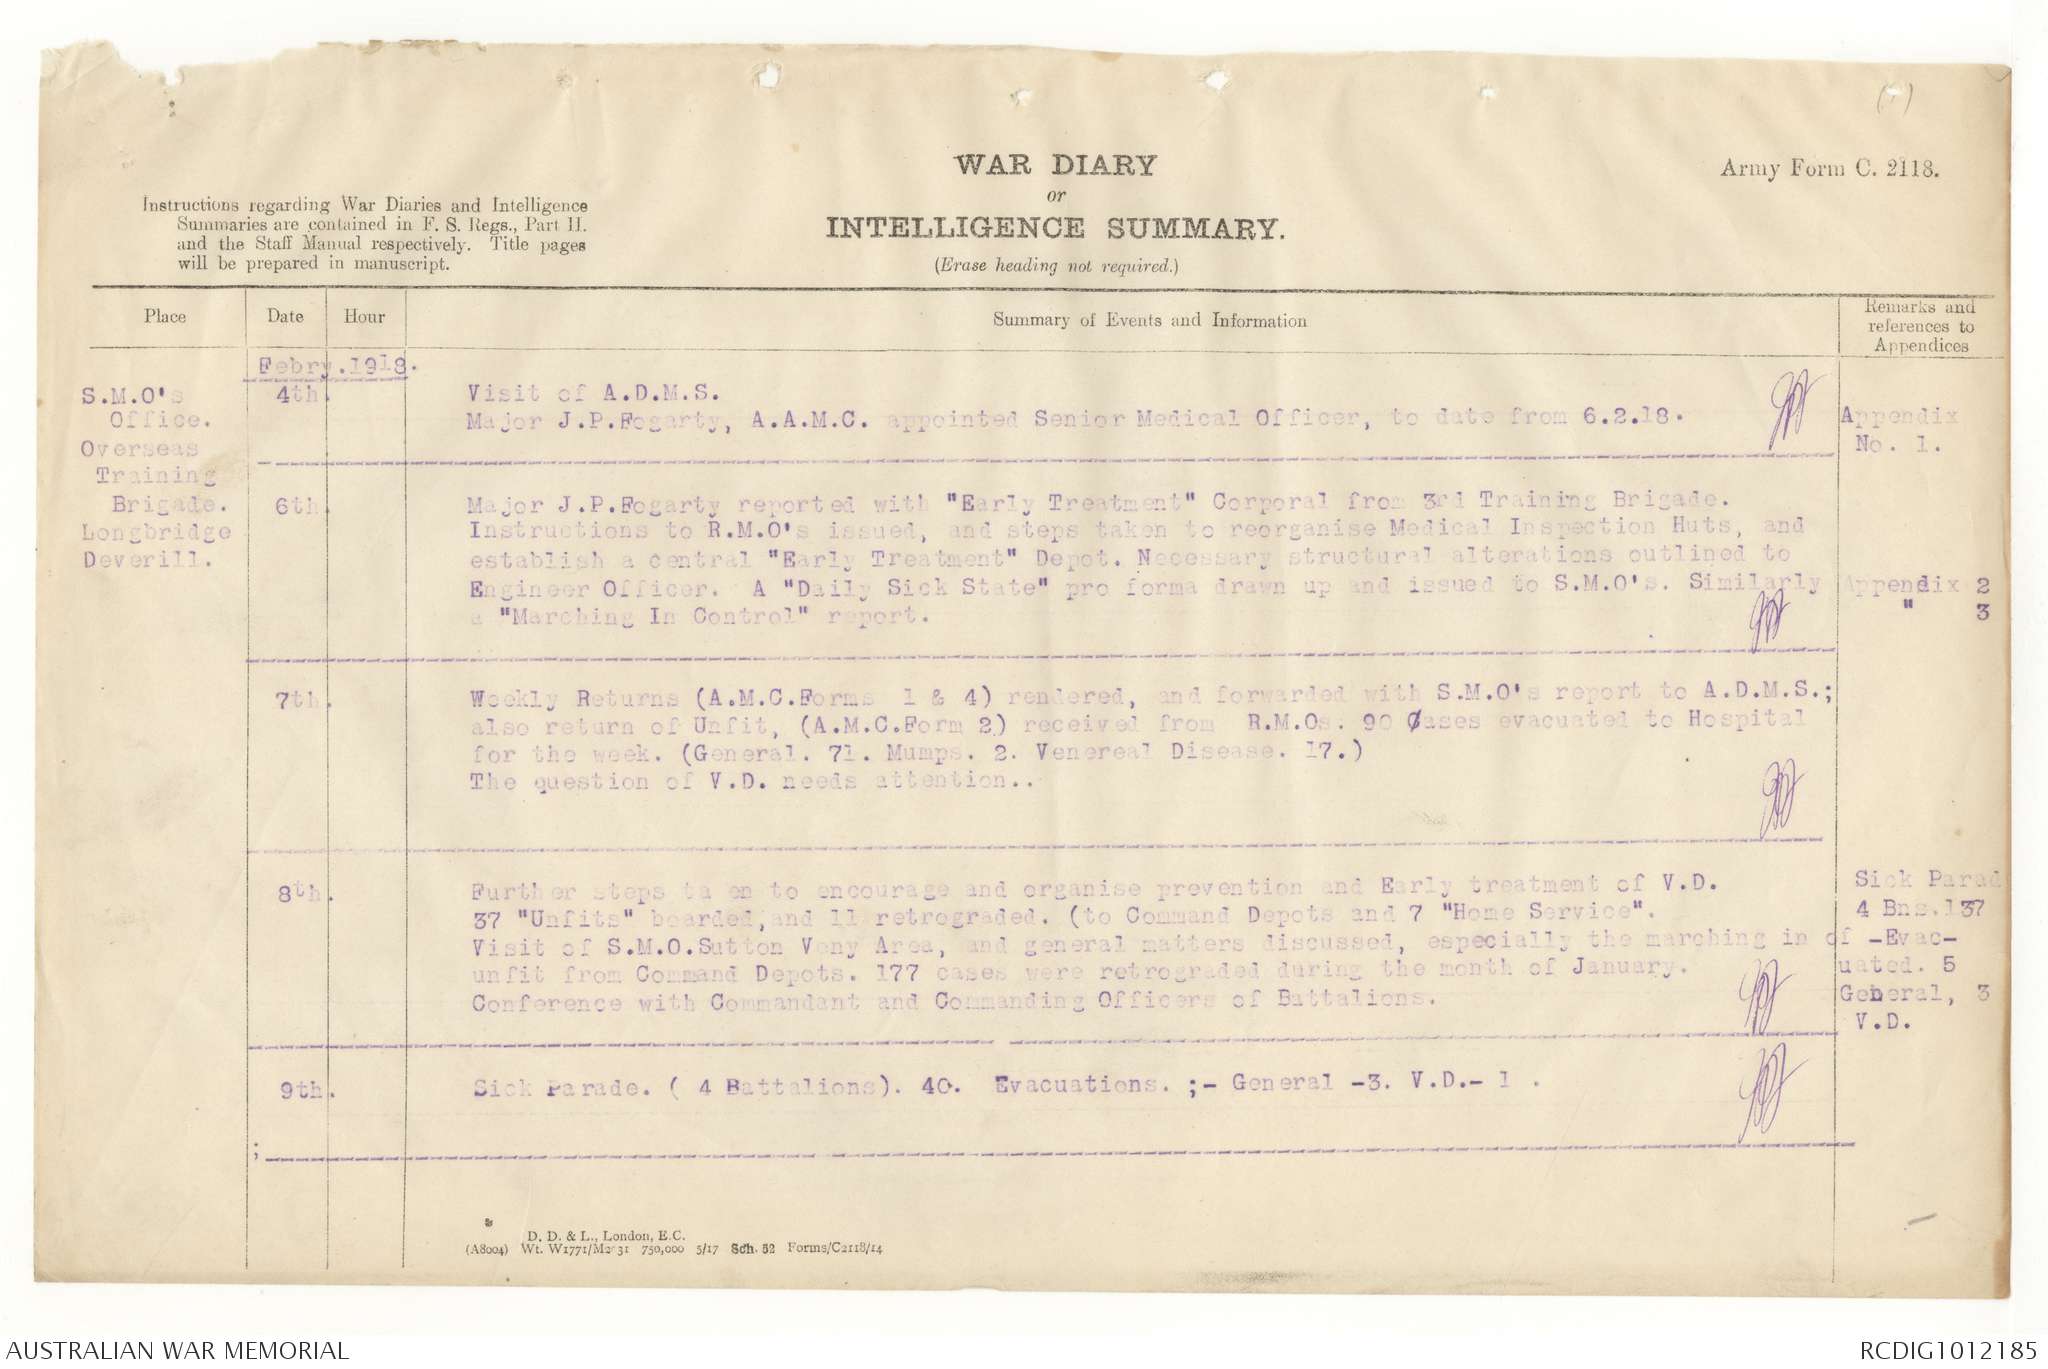 (1)
WAR DIARY
or
INTELLIGENCE SUMMARY.
(Erase heading not required.)
Army Form C. 2118.
Instructions regarding War Diaries and Intelligence
Summaries are contained in F. S. Regs., Part II.
and the Staff Manual respectively. Title pages
will be prepared in manuscript.
Place Date Hour Summary of Events and Information Remarks and references to Appendices
Febry.1918.
S.M.O's
Office.
Overseas
Training
Brigade.
Longbridge
Deverill.
4th. Visit of A.D.M.S.
Major J.P.Fogarty, A.A.M.C. appointed Senior Medical Officer, to date from 6.2.18. Appendix
No. 1.
6th. Major J.P.Fogarty reported with "Early Treatment" Corporal from 3rd Training Brigade.
Instructions to R.M.O's issued, and steps taken to reorganise Medical Inspection Huts, and
establish a central "Early Treatment" Depot. Necessary structural alterations outlined to
Engineer Officer. A "Daily Sick State" pro forma drawn up and issued to S.M.O's. Similarly Appendix 2
a "Marching In Control" report. " 3
7th. Weekly Returns (A.M.C.Forms 1 & 4) rendered, and forwarded with S.M.O's report to A.D.M.S.;
also return of Unfit, (A.M.C.Form 2) received from R.M.Os. 90 Cases evacuated to Hospital
for the week. (General. 71. Mumps. 2. Venereal Disease. 17.)
The question of V.D. needs attention..
8th. Further steps ta en to encourage and organise prevention and Early treatment of V.D. Sick Parad
37 "Unfits" boarded,and 11 retrograded. (to Command Depots and 7 "Home Service". 4 Bns.137
Visit of S.M.O.Sutton Veny Area, and general matters discussed, especially the marching in of -Evac-
unfit from Command Depots. 177 cases were retrograded during the month of January. uated. 5
Conference with Commandant and Commanding Officers of Battalions. General, 3
V.D.
9th. Sick Parade. ( 4 Battalions). 40. Evacuations. ;- General -3. V.D.- 1 .
;
D. D. & L., London, E.C.
(A8004) Wt. W1771/M2031 750,000 5/17 Sch. 52 Forms/C2118/14
AUSTRALIAN WAR MEMORIAL RCDIG1012185